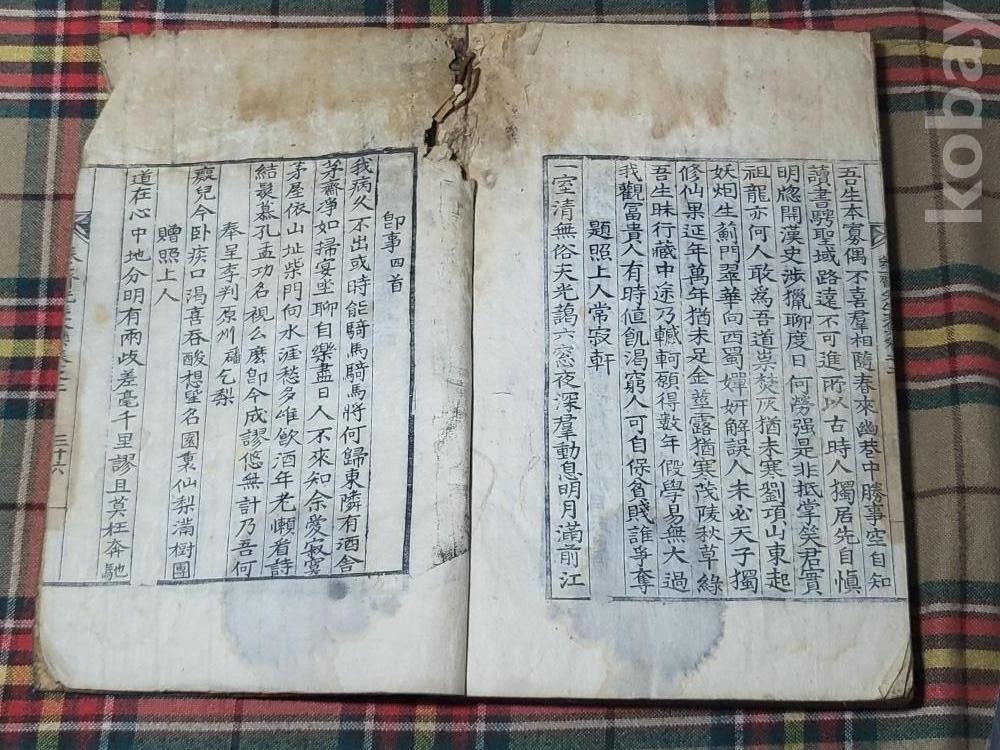 吾生本寡偶不喜羣相隨春來幽巷中勝事空自知
讀書騁聖域路遠不可進所以古時人獨居先自愼
明牕開漢史涉獵聊度日何勞强是非抵掌笑君實
祖龍亦何人敢爲吾道祟焚灰猶未寒劉項山東起
妖烟生薊門翠華向西蜀嬋姸解誤人未必天子獨
修仙果延年萬年猶未足金莖露猶寒茂陵秋草綠
吾生昧行藏中途乃轗軻願得數年假學易無大過
我觀富貴人有時値飢渴窮人可自保貧賤誰爭奪
題照上人常寂軒
一室清無俗天光譪六窓夜深羣動息明月滿前江
卽事四首
我病久不出或時能騎馬騎馬將何歸東隣有酒舍
茅齋淨如掃宴坐聊自樂盡日人不來知余愛寂寞
茅屋依山址柴門向水涯愁多唯飮酒年老懶看詩
結髮慕孔孟功名視么麽卽今成謬悠無計乃吾何
奉呈李判原州 乞梨
癡兒今卧疾口渴喜呑酸想望名園裏仙梨滿樹團
贈照上人
道在心中地分明有兩歧差毫千里謬且莫枉奔馳
三十六
kobay